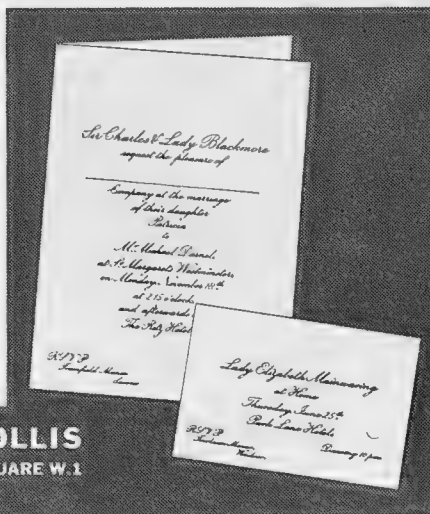 Sir Charles & Lady Blackmore
request the pleasure of
Company at the marriage
of their daughter
Patricia
to
Mr. Michael Darnel,
at St. Margarets Westminster
on Monday, November 18th
at 2.15 o'clock
and afterwards
The Ritz Hotel
R.S.V.P.
Manor
Lady Elizabeth Mainwaring
at Home
Thursday, June 25th
Park Lane Hotel
R.S.V.P.
Dancing 10 p.m.
Manor
Windsor
OLLIS
UARE W.1